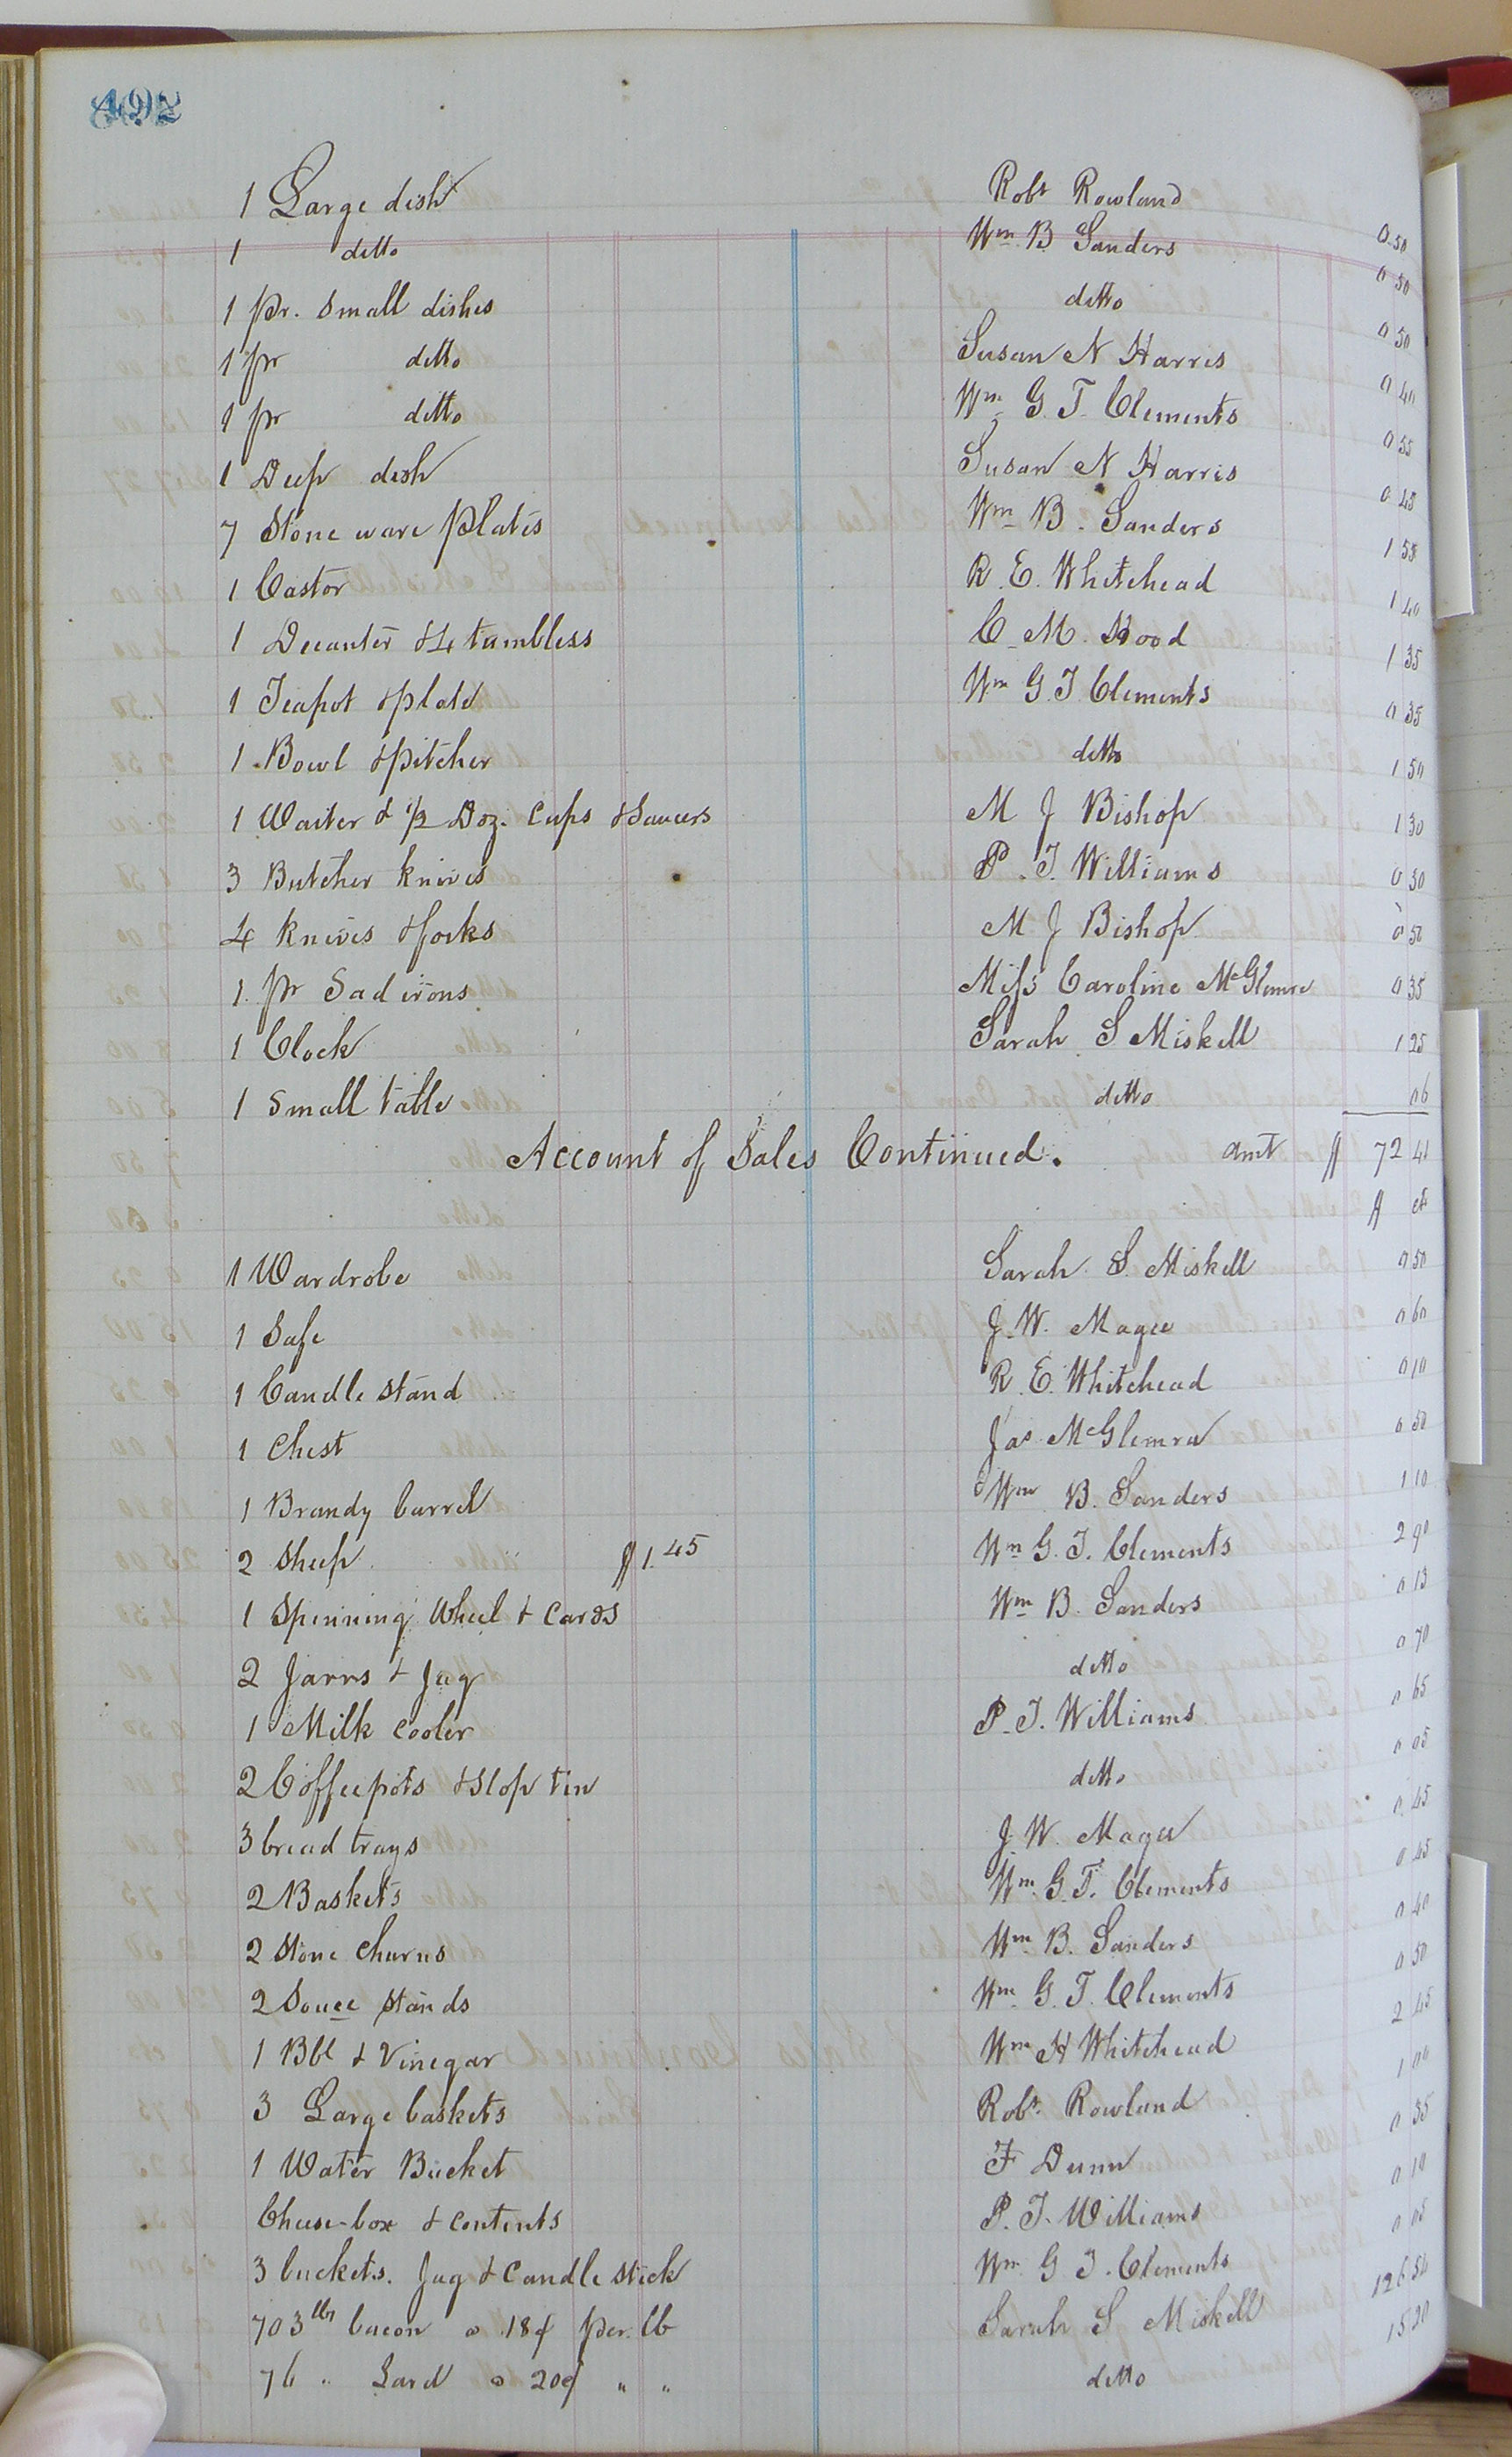 492
1 Large dish Robt Rowland 0.50
1 ditto Wm B Sanders 0 50
1 pr. small dishes ditto 0 50
1 pr ditto Susan N Harris 0 40
1 pr ditto Wm G. T. Clements 0 55
1 Deep dish Susan N Harris 0 45
7 Stone ware plates Wm B. Sanders 1 55
1 Castor R. E. Whitehead 1 40
1 Decanter & 4 tumbless C. M. Hood 1 35
1 Teapot & plate Wm G T Clements 0 35
1 Bowl & pitcher ditto 1 50
1 Waiter & 1/2 Doz. Cups & Saucers M J Bishop 1 30
3 Butcher knives P. T. Williams 0 30
4 knives & forks M J Bishop 0 50
1. pr Sad irons Miss Caroline McGlemre 0 35
1 Clock Sarah S Miskell 1 25
1 small table ditto 06
Account of Sales Continued. amt $ 72 41
$ cts
1 Wardrobe Sarah S. Miskell 0 50
1 Safe J. W. Magee 0 60
1 Candle stand R. E. Whitehead 0 10
1 Chest Jas McGlemre 0 50
1 Brandy barrel Wm B. Sanders 1 10
2 Sheep $1.45 Wm G. T. Clements 2 90
1 Spinning Wheel & Cards Wm B. Sanders 0 13
2 Jarrs & Jug ditto 0 70
1 Milk cooler P. T. Williams 0 65
2 Coffeepots & Slop tin ditto 0 05
3 bread trays J. W. Magee 0 45
2 Baskets Wm. G. T. Clements 0 45
2 Stone Churns Wm B. Sanders 0 40
2 Souce Stands Wm G. T. Clements 0 50
1 Bbl & Vinegar Wm H Whitehead 2 45
3 Large baskets Robt. Rowland 1 00
1 Water Bucket F Dunn 0 35
Cheese-box & contents P. T. Williams 0 10
3 buckets. Jug & Candle stick Wm G T. Clements 0 05
703 lbs bacon @ .18¢ per. lb Sarah S Miskell 126.54
76 " Lard @ 20¢ " " ditto 15 20